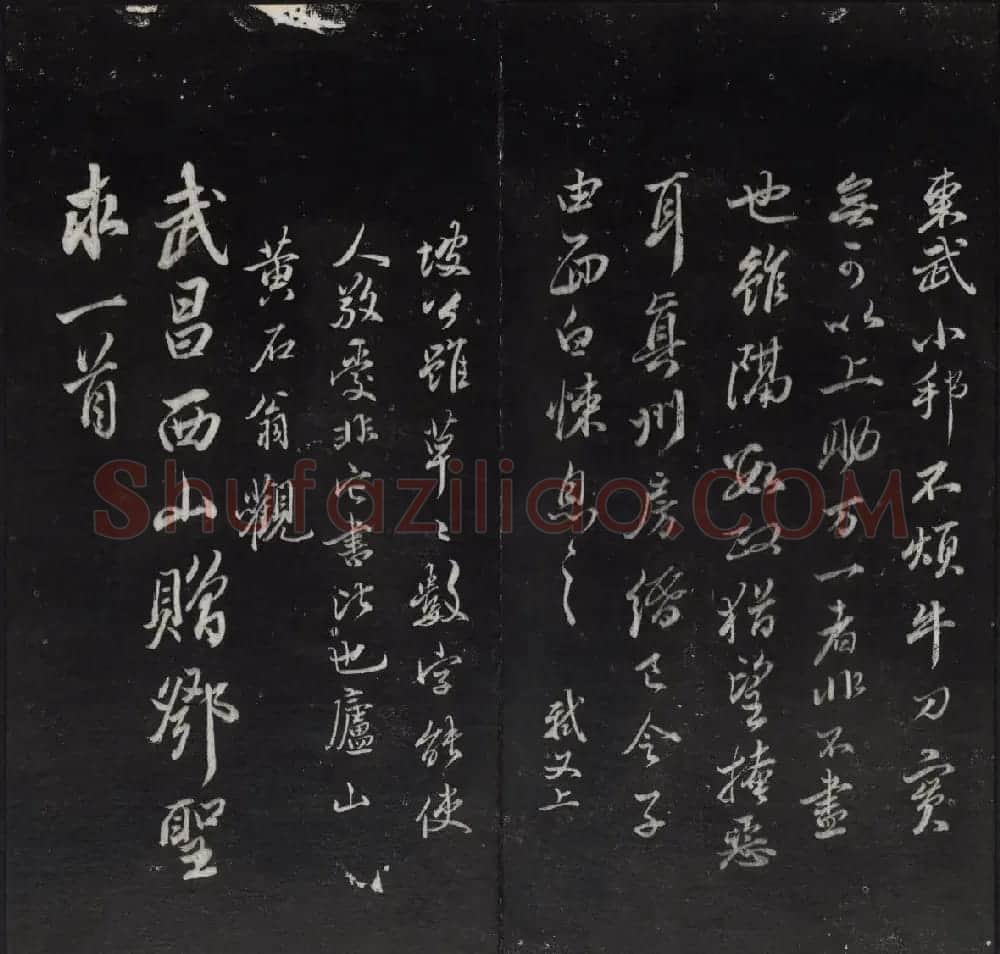 東武小邦不煩牛刀實
無可以上助万一者非不盡
也雖隔數政猶望掩惡
耳真州房緡已令子
由面白悚息〻 軾又上
坡公雖草〻數字能使
人敬愛非它書比也廬山
黃石翁觀
武昌西山贈鄧聖
求一首
Shufaziliao.COM